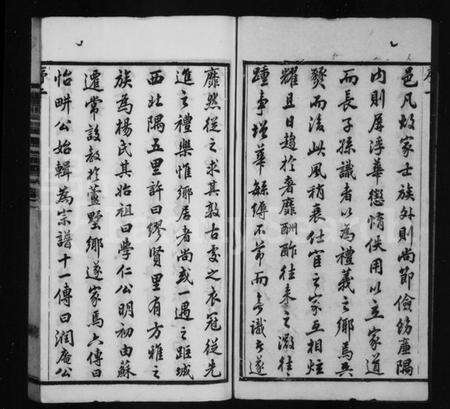 邑凡故家士族外則尚節儉飭廉隅
內則屏浮華懲惰佚用以立家道
而長子孫識者以為禮義之鄉焉兵
燹而後此風稍衰仕宦之家互相炫
耀且日趨於奢靡酬酢往來之漵往
踵事增華繇縟不節而無識者遂
靡然從之求其敦古處之衣冠從先
進之禮樂惟鄉居者尚或一遇之距城
西北隅五里許曰繆賢里有方雅之
族為楊氏其始祖曰學仁公明初由蘇
遷常設教於蘆墅鄉遂家焉六傳曰
怡畊公始輯為宗譜十一傳曰潤庵公
序